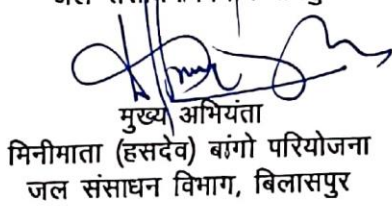 मुख्य अभियंता
मिनीमाता (हसदेव) बांगो परियोजना
जल संसाधन विभाग, बिलासपुर